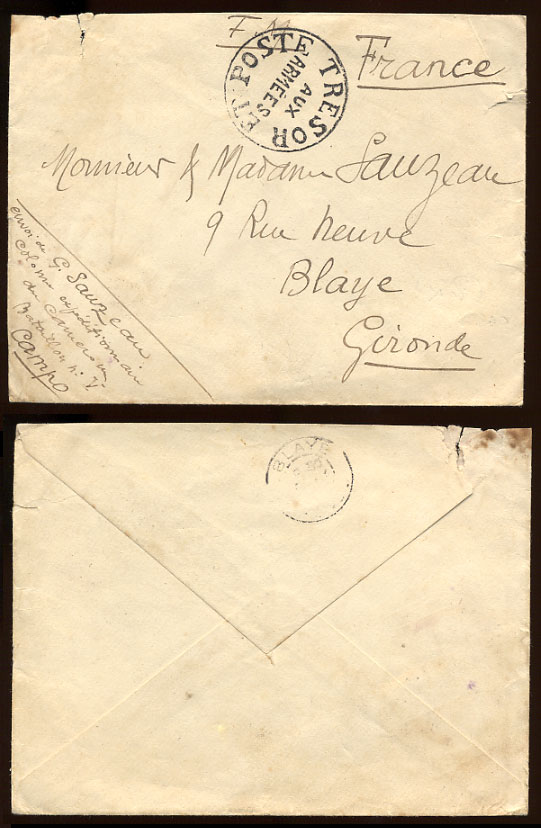 F.M.
TRESOR ET POSTE
AUX
ARMÉES
France
Monsieur & Madame Sauzeau
9 Rue Neuve
Blaye
Gironde
envoi de G. Sauzeau
colonne expéditionnaire
du Cameroun
Bataillon n.
Campo
BLAYE